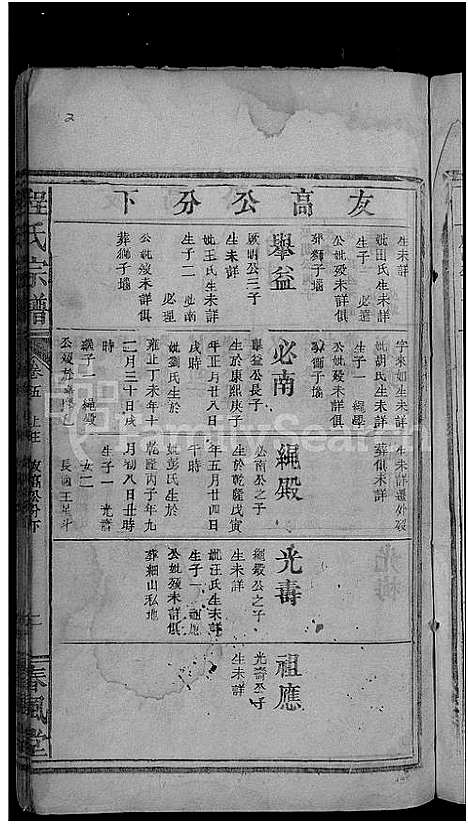 友高公分下
生未詳
妣田氏生未詳
生子一 必達
公妣歿未詳俱
葬獅子塘
舉益
啟明公三子
生未詳
妣王氏生未詳
生子二 必南
必理
公妣歿未詳俱
葬獅子塘
字來如生未詳
妣胡氏生未詳
生子一 繩學
公妣歿未詳俱
葬獅子塘
必南
舉益公長子
生於康熙庚子
年正月廿八日
戌時
妣劉氏生於
雍正丁未年十
二月三十日戌
時
繼子一 繩殿
生未詳遷外歿
葬俱未詳
繩殿
必南公之子
生於乾隆戊寅
年五月廿四日
午時
妣彭氏生於
乾隆丙子年九
月初八日丑時
生子一 光壽
女二
長適王呈斗
光壽
繩殿公之子
生未詳
妣汪氏生未詳
生子一 祖應
公妣歿未詳俱
葬細山私地
祖應
光壽公子
生未詳
程氏宗譜
卷五
春風堂
FamilySearch